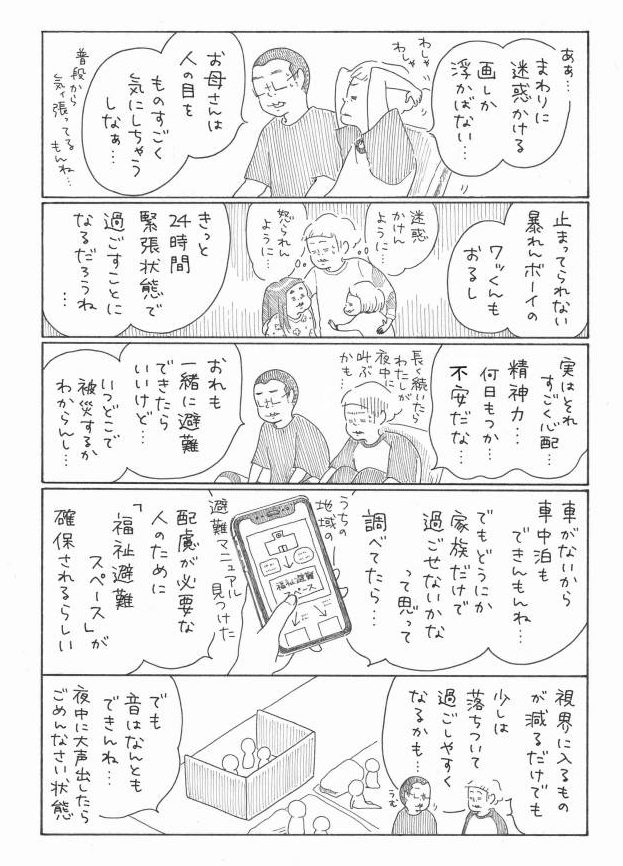 あぁ…
まわりに
迷惑かける
画しか
浮かばない…
わしゃ
わしゃ
お母さんは
人の目を
ものすごく
気にしちゃう
しなぁ…
普段から
気ィ張ってる
もんね…
止まってられない
暴れんボーイの
ワッくんも
おるし
迷惑
かけん
ように…
怒られん
ように…
きっと
24時間
緊張状態で
過ごすことに
なるだろうね
…
実はそれ
すごく心配…
精神力…
何日もつか…
不安だな…
長く続いたら
わたしが
夜中に
叫ぶ
かも…
おれも
一緒に避難
できたら
いいけど…
いつどこで
被災するか
わからんし…
車がないから
車中泊も
できんもんね…
でもどうにか
家族だけで
過ごせないかな
って思って
調べてたら…
うちの
地域の
避難マニュアル
見つけた
スペース
配慮が必要な
人のために
「福祉避難
スペース」が
確保されるらしい
視界に入るもの
が減るだけでも
少しは
落ちついて
過ごしやすく
なるかも…
うむ
でも
音はなんとも
できんね…
夜中に大声出したら
ごめんなさい状態